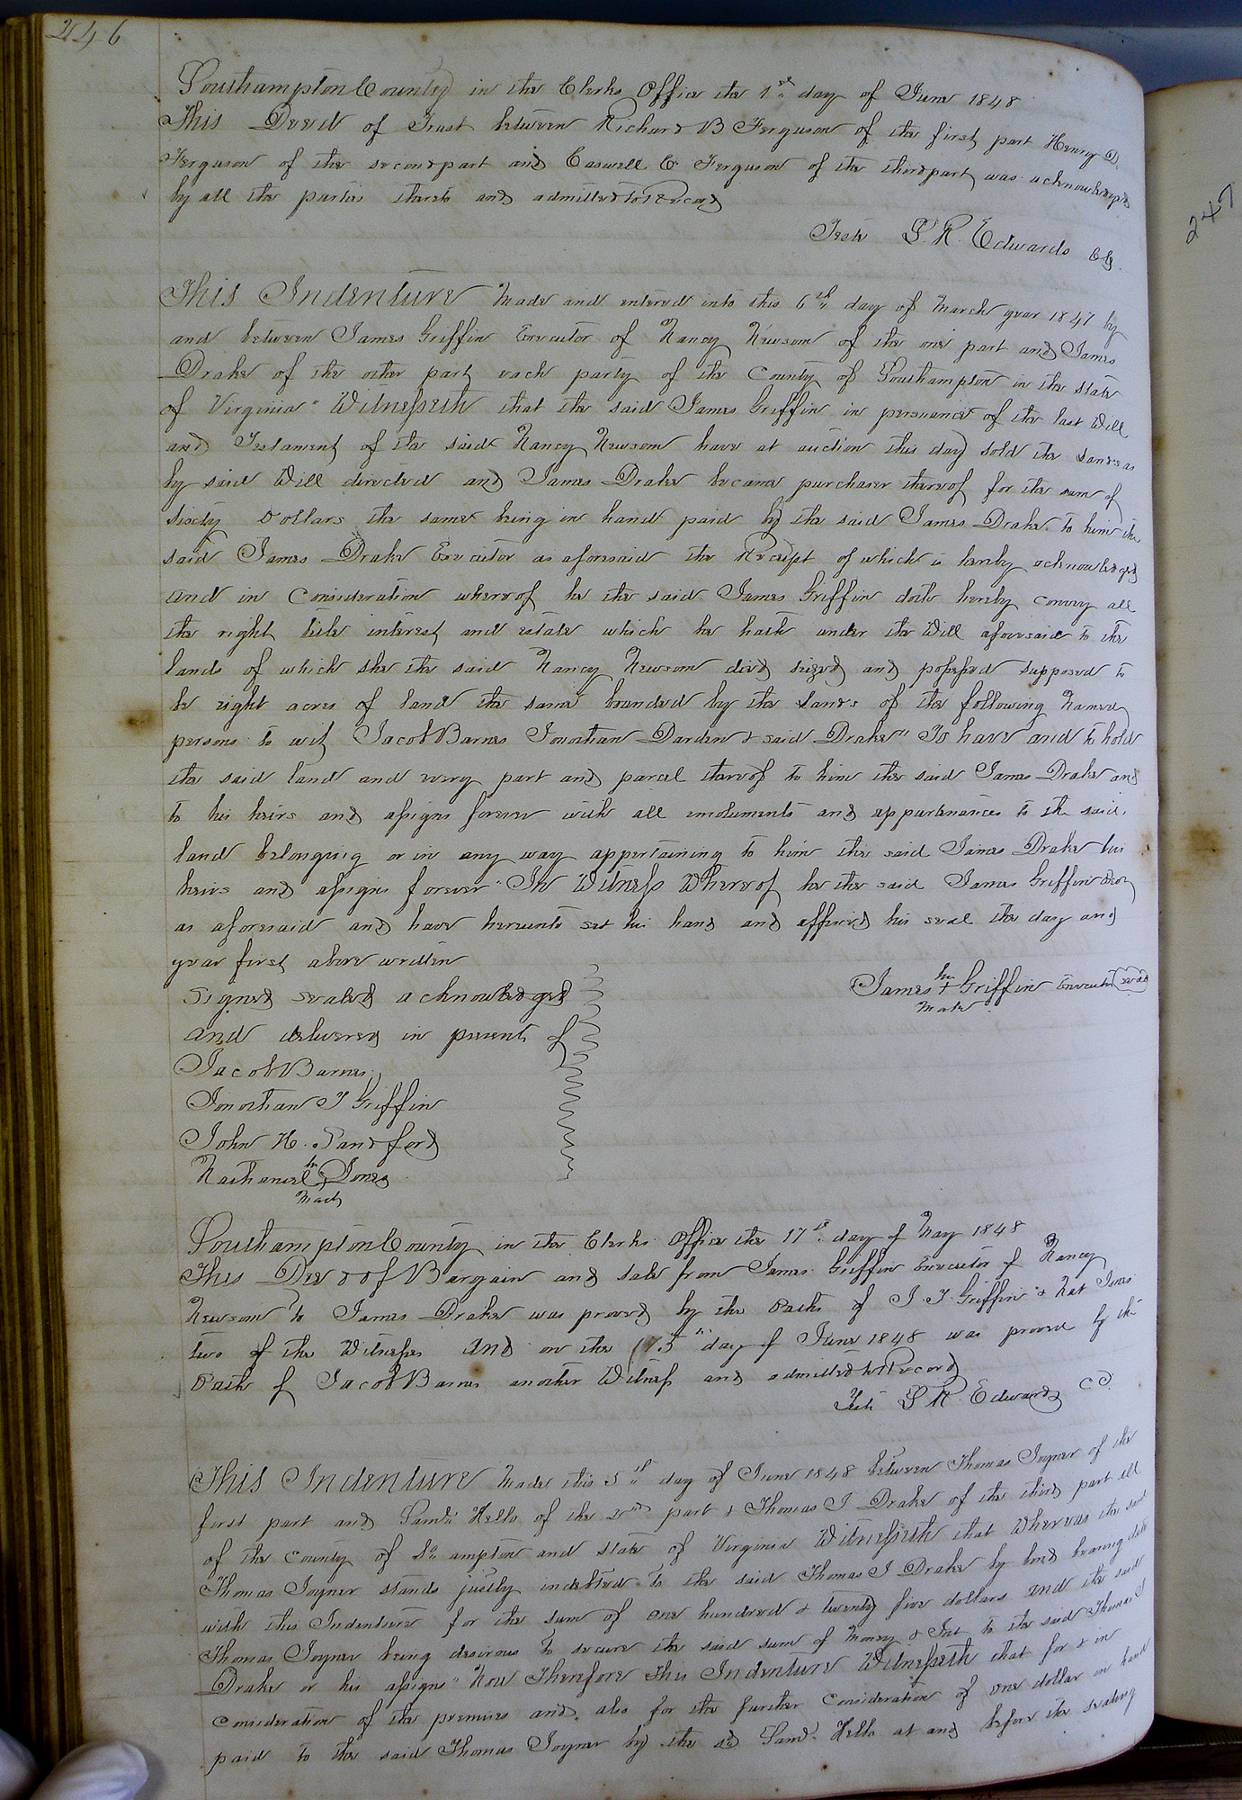 246
Southampton County in the Clerks Office the 1st day of June 1848
This Deed of Trust between Richard B Ferguson of the first part Henry D.
Ferguson of the second part and Caswell C Ferguson of the third part was acknowledged
by all the parties thereto and admitted to Record
Teste L. R. Edwards Clk.
247
This Indenture Made and entered into this 6th day of March year 1847 by
and between James Griffin Executor of Nancy Newsom of the one part and James
Drake of the other part each party of the County of Southampton in the state
of Virginia" Witnesseth that the said James Griffin in persuance of the last Will
and Testament of the said Nancy Newsom have at auction this day sold the lands as
by said Will directed and James Drake became purchaser thereof for the sum of
sixty Dollars the same being in hand paid by the said James Drake to him the
said James Drake Executor as aforesaid the Receipt of which is hereby acknowledged
and in consideration whereof he the said James Griffin doth hereby convey all
the right title interest and estate which he hath under the Will aforesaid to the
lands of which she the said Nancy Newsom died seized and possessed supposed to
be eight acres of land the same bounded by the lands of the following Named
persons to wit Jacob Barnes Jonathan Darden & said Drake" To have and to hold
the said land and every part and parcel thereof to him the said James Drake and
to his heirs and assigns forever with all emoluments and appurtenances to the said
land belonging or in any way appertaining to him the said James Drake his
heirs and assigns forever" In Witness Whereof he the said James Griffin Exor
as aforesaid and have hereunto set his hand and affixed his seal the day and
year first above written
James his + mark Griffin Executor (seal)
Signed sealed acknowledged
and delivered in presents of
Jacob Barnes
Jonathan J Griffin
John H. Sandford
Nathaniel his + mark Jones
Southampton County in the Clerks Office the 17th day of May 1848
This Deed of Bargain and sale from James Griffin Executor of Nancy
Newsom to James Drake was proved by the Oaths of J J Griffin & Nat Jones
two of the Witnesses And on the 15th day of June 1848 was proved by the
Oath of Jacob Barnes another Witness and admitted to Record
Teste L R Edwards CC.
This Indenture Made this 5th day of June 1848 between Thomas Joyner of the
first part and Saml. Kello of the 2nd part & Thomas J Drake of the third part all
of the County of So ampton and state of Virginia Witnesseth that Whereas the said
Thomas Joyner stands justly indebted to the said Thomas J Drake by bond bearing date
with this Indenture for the sum of one hundred & twenty five dollars and the said
Thomas Joyner being desirous to secure the said sum of money & Int to the said Thomas J
Drake or his assigns" Now Therefore this Indenture Witnesseth that for & in
consideration of the premises and also for the further consideration of one dollar in hand
paid to the said Thomas Joyner by the sd Saml. Kello at and before the sealing